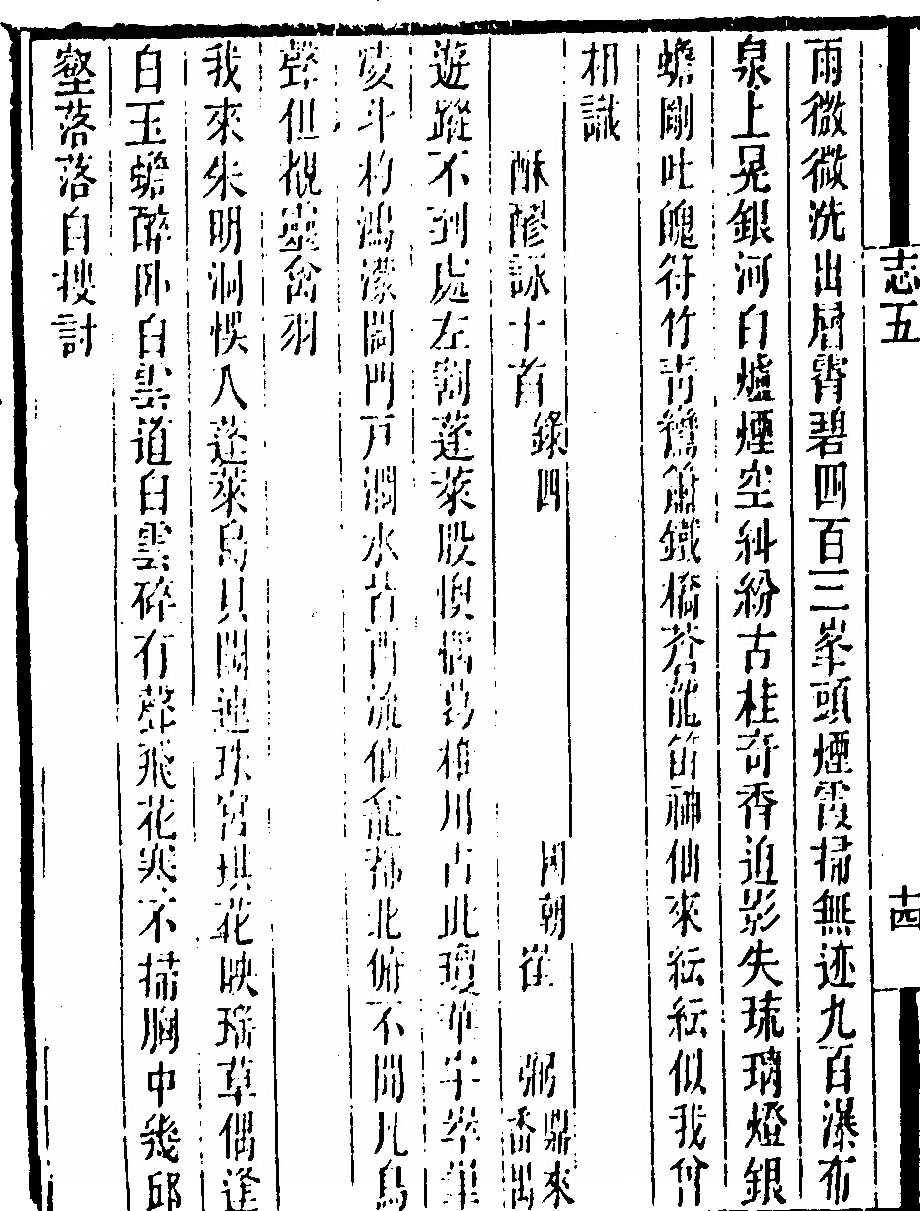 志五
十四
雨微微洗出層霄碧四百三峯頭煙霞掃無迹九百瀑布
泉上晃銀河白爐煙空糾紛古桂奇香迫影失琉璃燈銀
蟾剛吐魄符竹青鸞簫鐵橋蒼龍笛神仙來紜紜似我曾
相識
酥醪詠十首錄四 國朝崔弼鼎來番禺
遊蹤不到處左割蓬萊股懊偶葛稚川古此瓊華宇峯巢
斗杓鴻濛闢門戶澗水苔門流仙龕北俯不聞凡鳥
聲但覩靈禽羽
我來朱明洞悞入蓬萊島貝闕連珠宮琪花映瑤草偶逢
白玉蟾醉臥白雲道白雲碎有聲飛花寒不掃胸中幾邱
壑落落自搜討